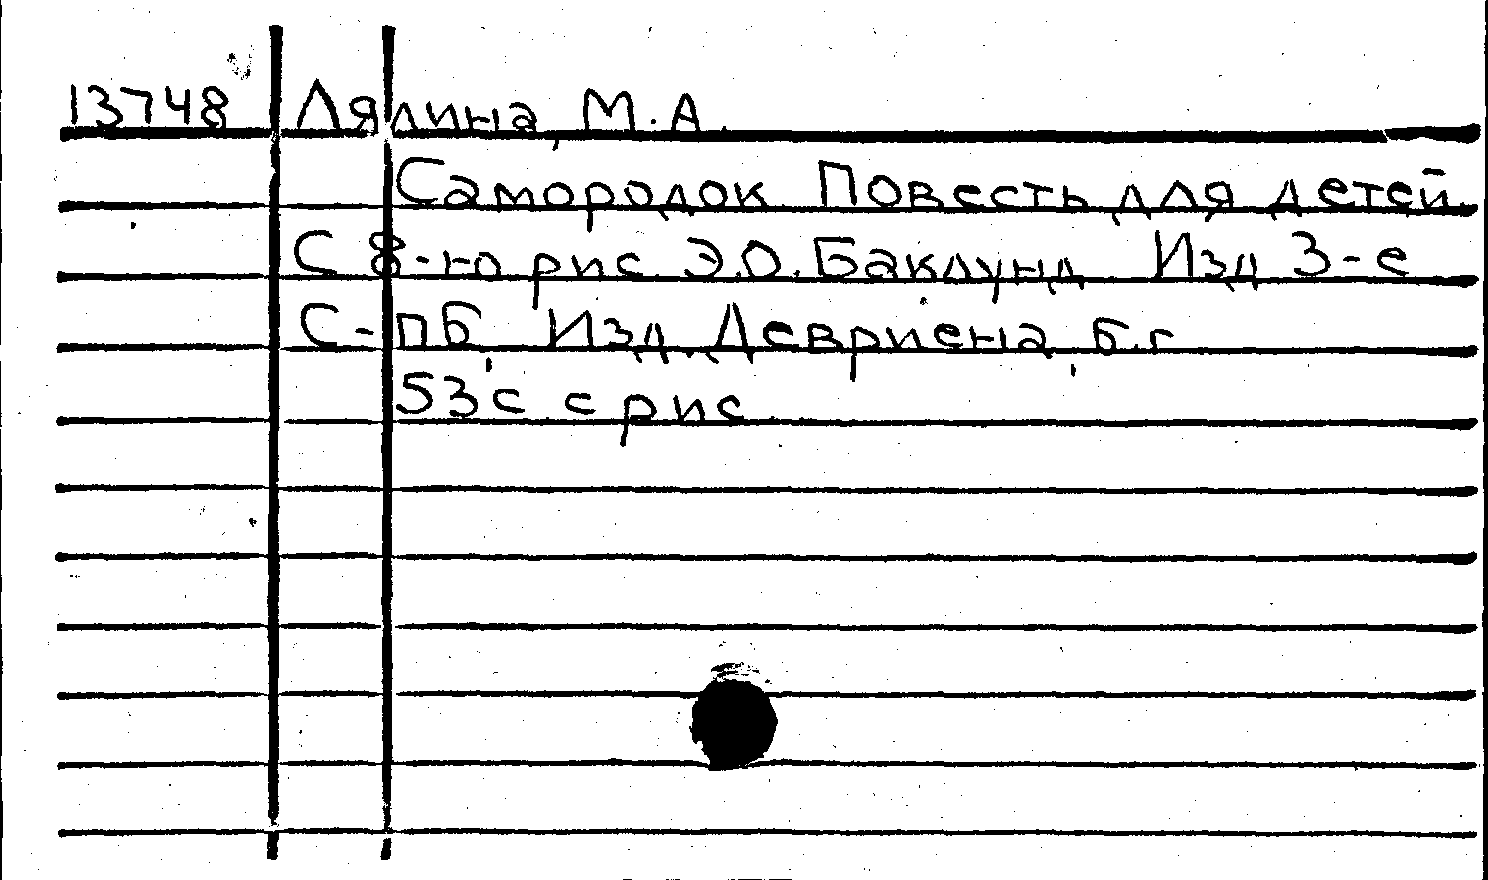 13748 Лялина, М.А.
Самородок Повесть для детей.
С 8-ю рис. Э.О. Баклунд Изд 3-е
С-пб, Изд. Девриена, б.г
53с с рис